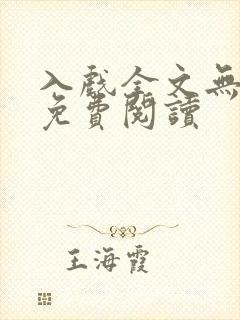 入戲全文無
免費閱讀
王海霞